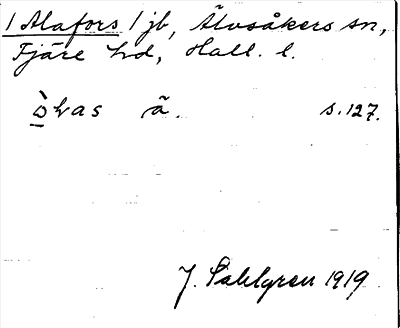 1 Alafors 1 jb, Älvsåkers sn,
Fjäre hd, Hall. l.
s. 127.
J. Sahlgren 1919